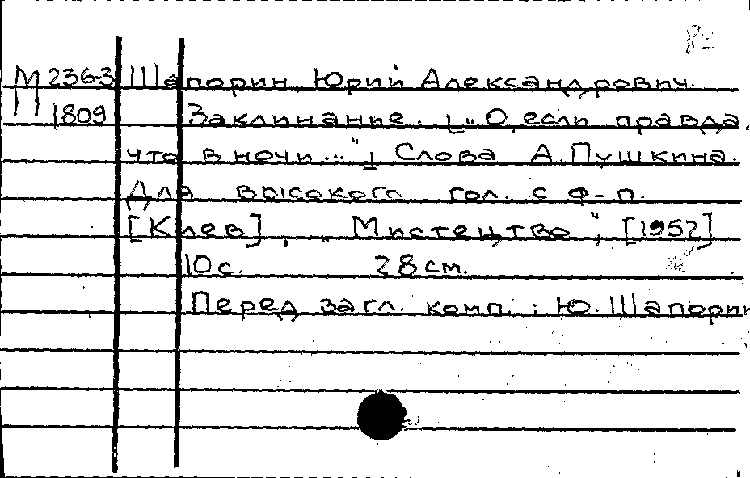 М 236-3 Шапорин, Юрий Александрович.
1809 Заклинание. [„О, если правда,
что в ночи..."] Слова А. Пушкина.
Для высокого гол. с ф-п.
[Киев], „Мистецтво", [1952]
10 с. 28 см.
Перед загл. комп.: Ю. Шапорин